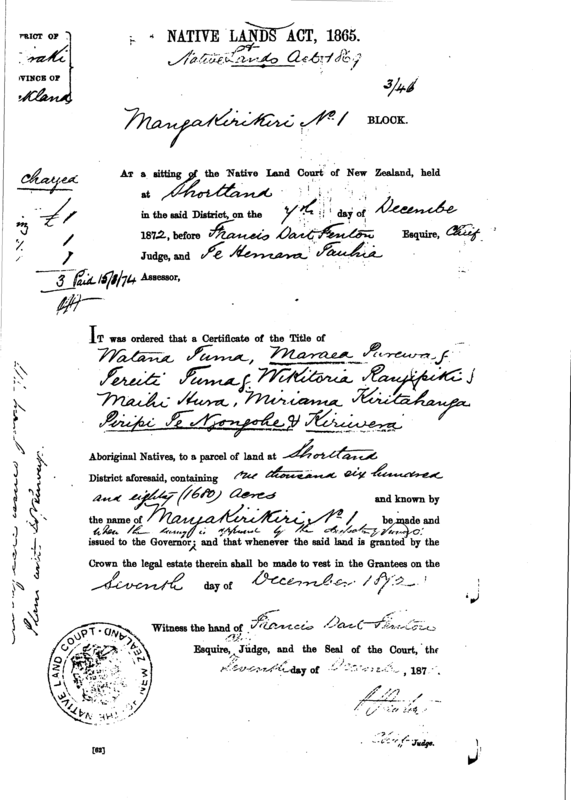 NATIVE LANDS ACT, 1865.
Native Lands Act 1869
TRICT OF
raki
VINCE OF
kland
3/46
Mangakirikiri No. 1 BLOCK.
AT a sitting of the Native Land Court of New Zealand, held
at Shortland
in the said District, on the 7th day of Decembe
1872, before Francis Dart Fenton Esquire, Chief
Judge, and Te Hemara Tauhia
Assessor,
charged
£1
1
1
3 Paid 15/8/74
IT was ordered that a Certificate of the Title of
Watana Tuma, Maraea Purewa &
Tereiti Tuma & Wikitoria Rangipiki &
Maihi Hura, Miriama Kiritahanga
Piripi Te Ngongohe & Kiriwera
Aboriginal Natives, to a parcel of land at Shortland
District aforesaid, containing one thousand six hundred
and eighty (1680) Acres and known by
the name of Mangakirikiri No. 1 be made and
when the survey is approved by the
issued to the Governor; and that whenever the said land is granted by the
Crown the legal estate therein shall be made to vest in the Grantees on the
Seventh day of December 1872
Witness the hand of Francis Dart Fenton
Esquire, Judge, and the Seal of the Court, the
Seventh day of December, 187
Chief Judge.
NATIVE LAND COURT
NEW ZEALAND
[63]